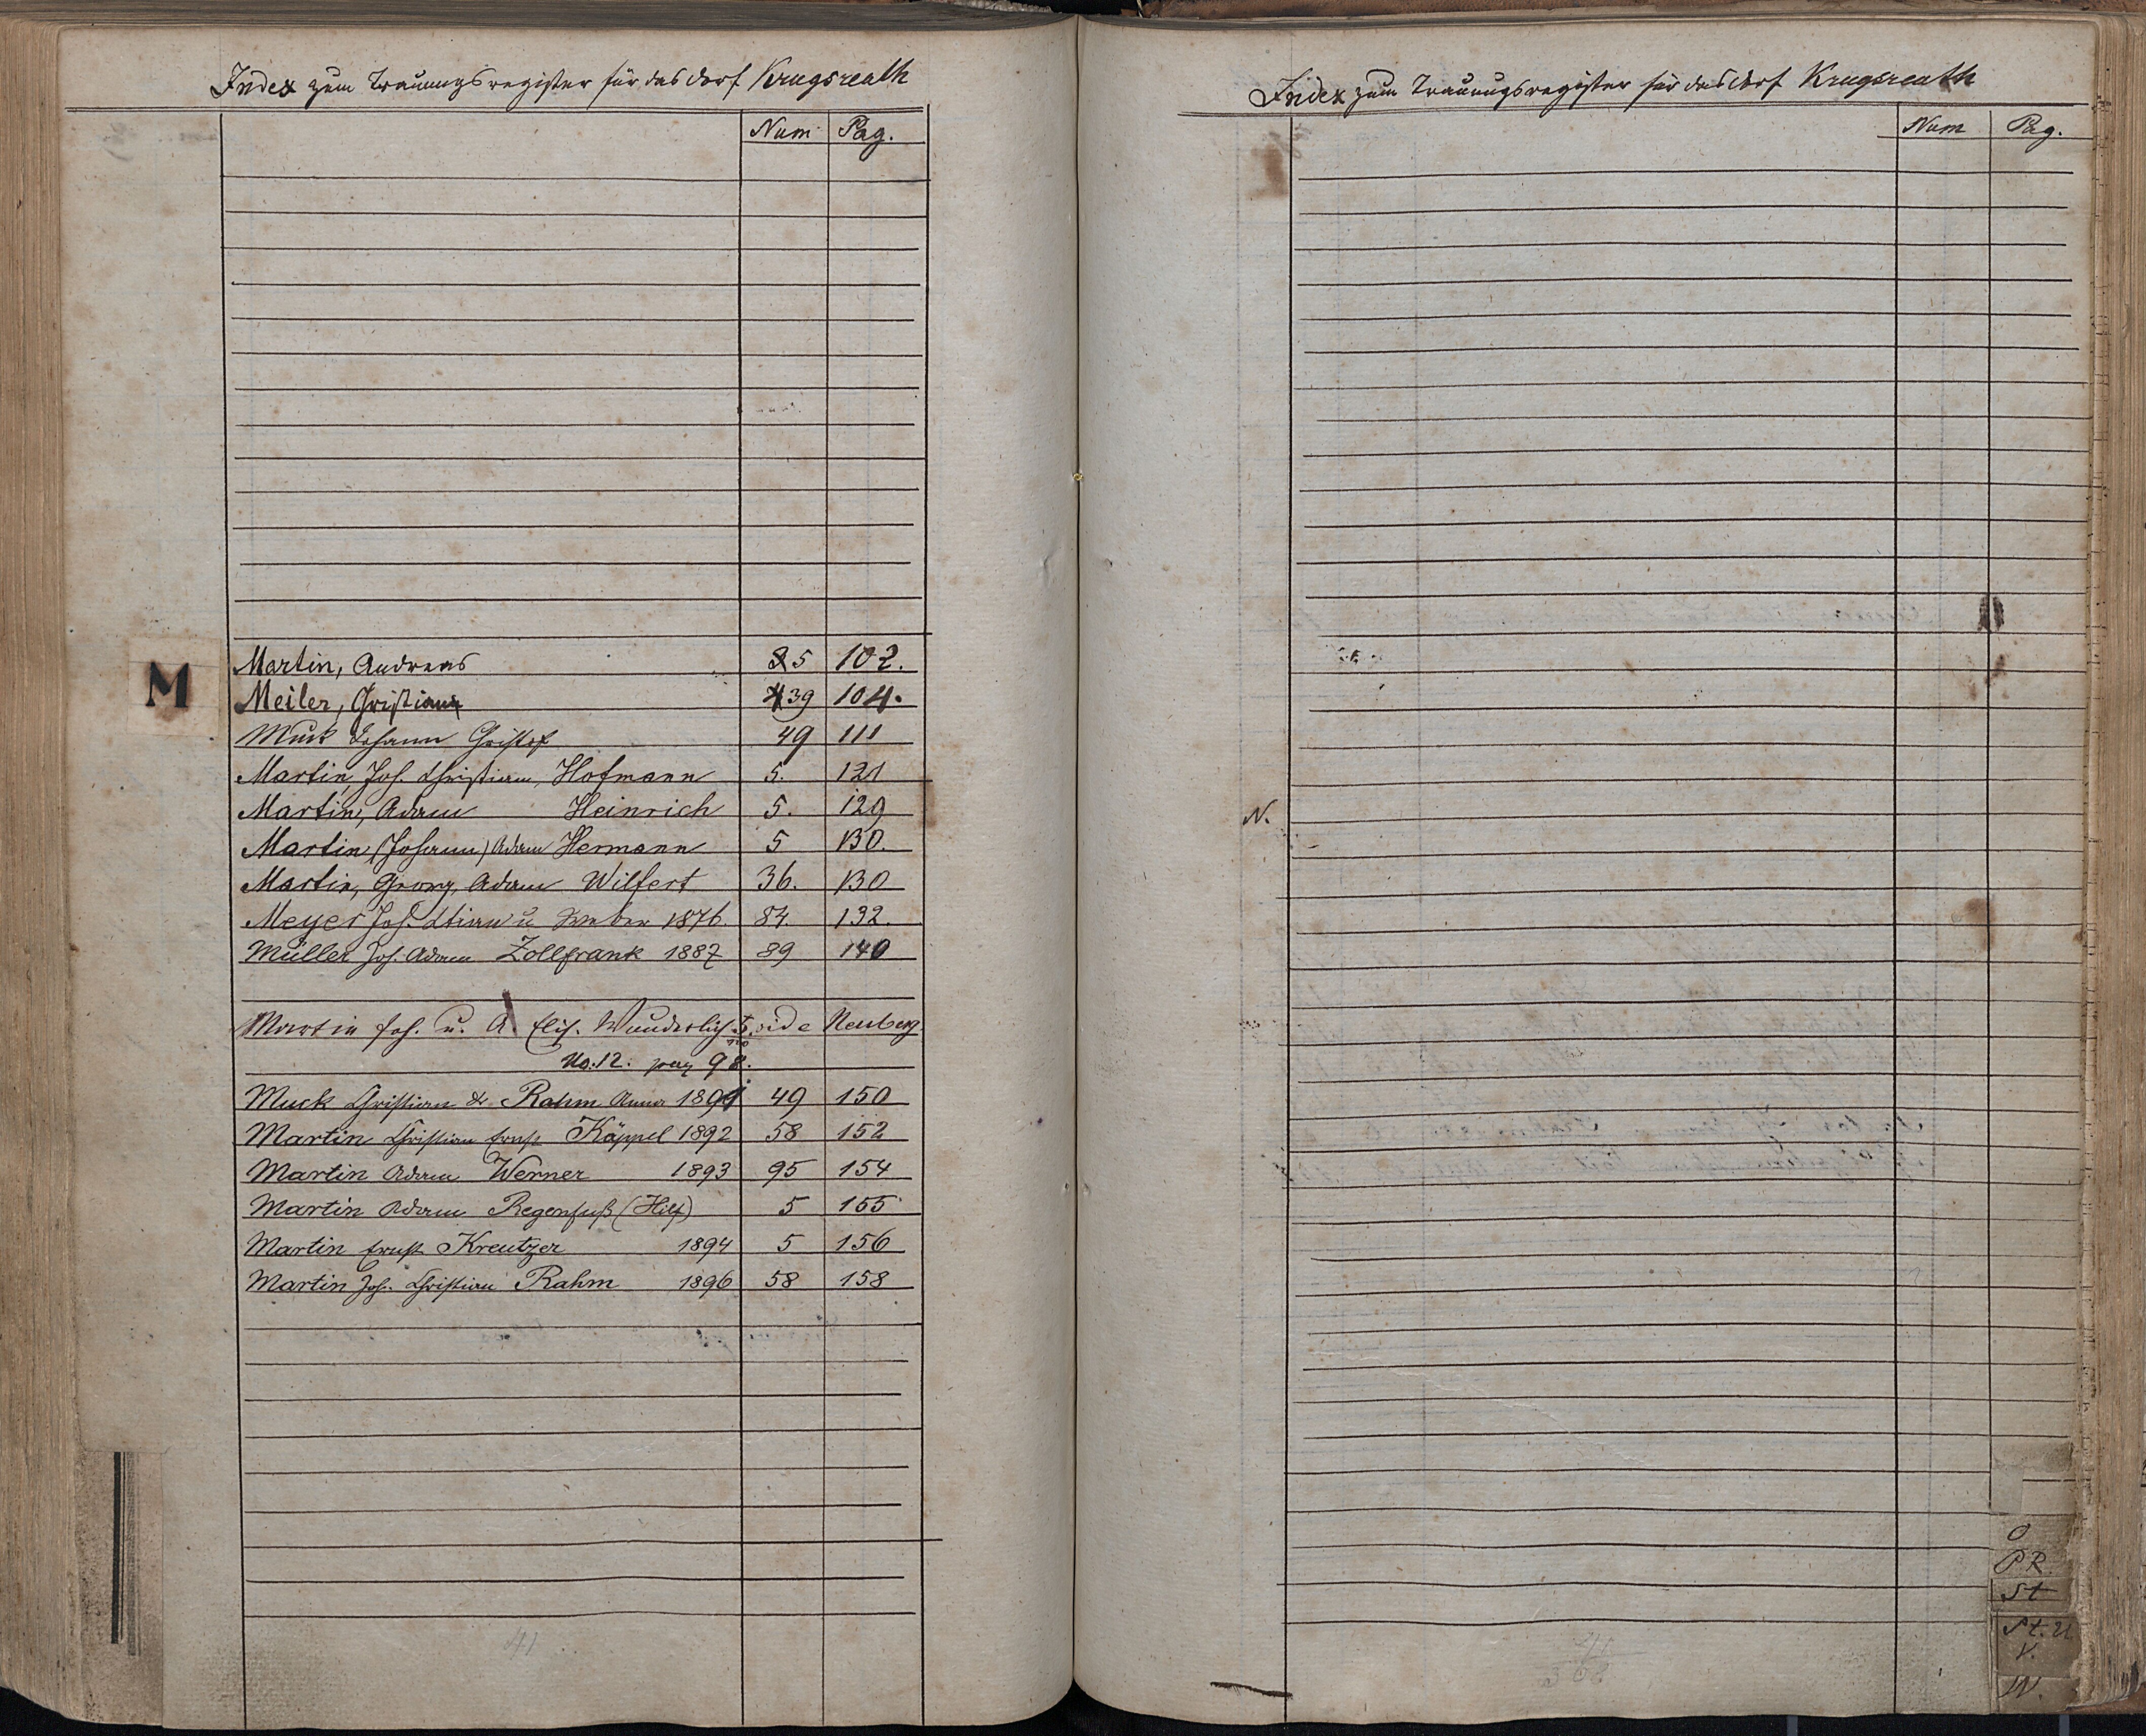 Index zum Trauungsregister für das Dorf Krugsreuth
Num Pag.
M
Martin, Andreas 5 102.
Meiler, Christian 39 104.
Muck Johann Christof 49 111
Martin, Joh. Christian, Hofmann 5. 121
Martin, Adam Heinrich 5. 129
Martin, (Johann) Adam Hermann 5 130.
Martin, Georg, Adam Wilfert 36. 130
Meyer Joh. Xtian u 1876. 84. 132.
Müller Joh. Adam Zollfrank 1887 89 140
Martin Joh. u. A. Elis. Wunderlich vide Neuberg
No. 12. pag 98.
Muck Christian & Rahm Anna 1891 49 150
Martin Christian Ernst Käppel 1892 58 152
Martin Adam Werner 1893 95 154
Martin Adam Regenfuß (Hilf) 5 155
Martin Ernst Kreutzer 1894 5 156
Martin Joh. Christian Rahm 1896 58 158
41
Index zum Trauungsregister für das Dorf Krugsreuth
Num Pag.
N.
O
P. R.
St
St. U
V.
W.